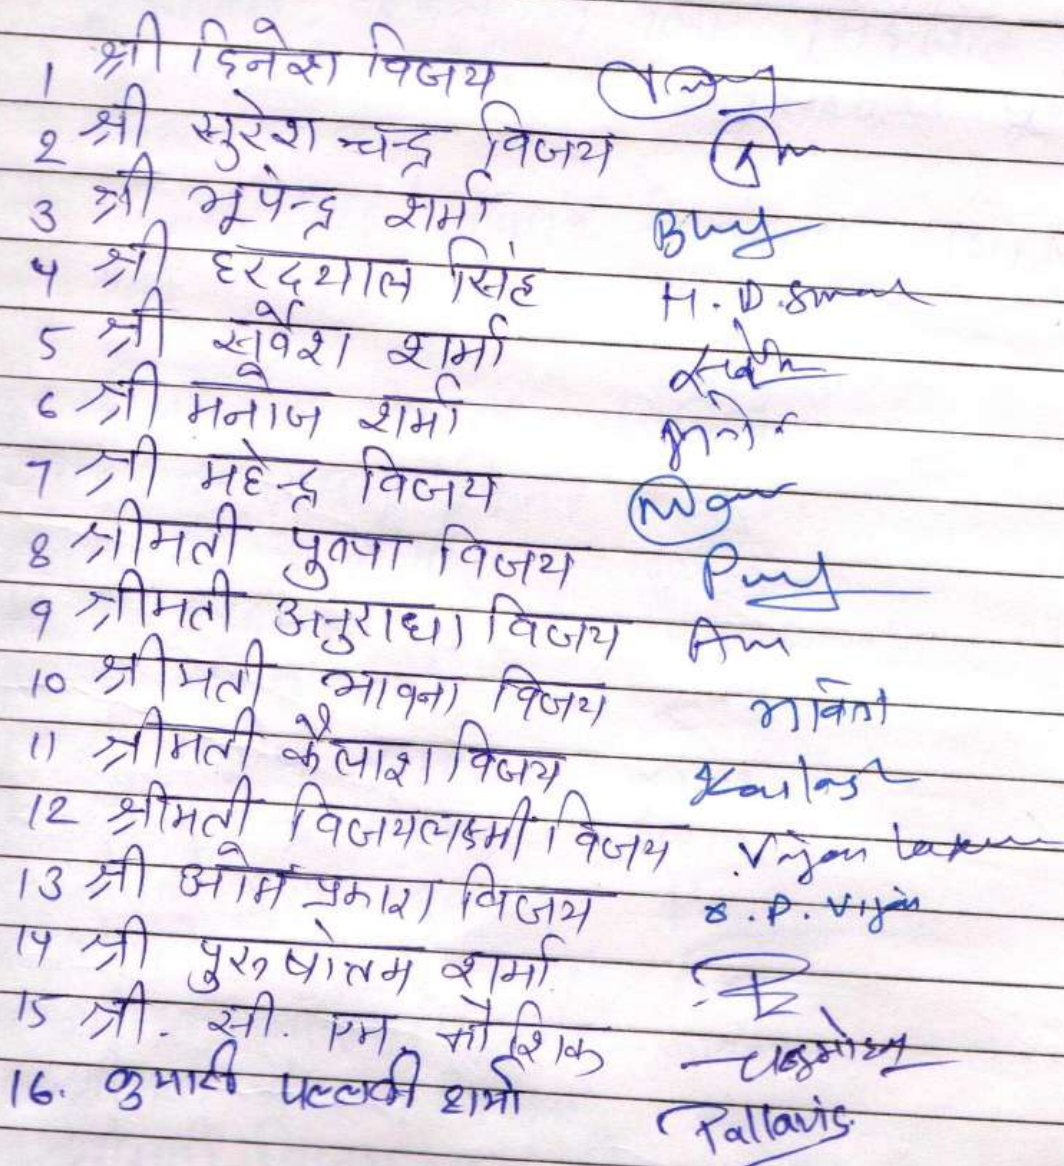 1 श्री दिनेश विजय
2 श्री सुरेश चन्द्र विजय
3 श्री भूपेन्द्र शर्मा Bhy
4 श्री हरदयाल सिंह H. D.
5 श्री सर्वेश शर्मा
6 श्री मनोज शर्मा
7 श्री महेन्द्र विजय
8 श्रीमती विजय
9 श्रीमती अनुराधा विजय Anu
10 श्रीमती भावना विजय
11 श्रीमती कैलाश विजय Kailash
12 श्रीमती विजयलक्ष्मी विजय Vijay
13 श्री ओम प्रकाश विजय P. Vijay
14 श्री पुरुषोतम शर्मा
15 श्री. सी. एम. कौशिक
16. कुमारी पल्लवी शर्मा Pallavis.